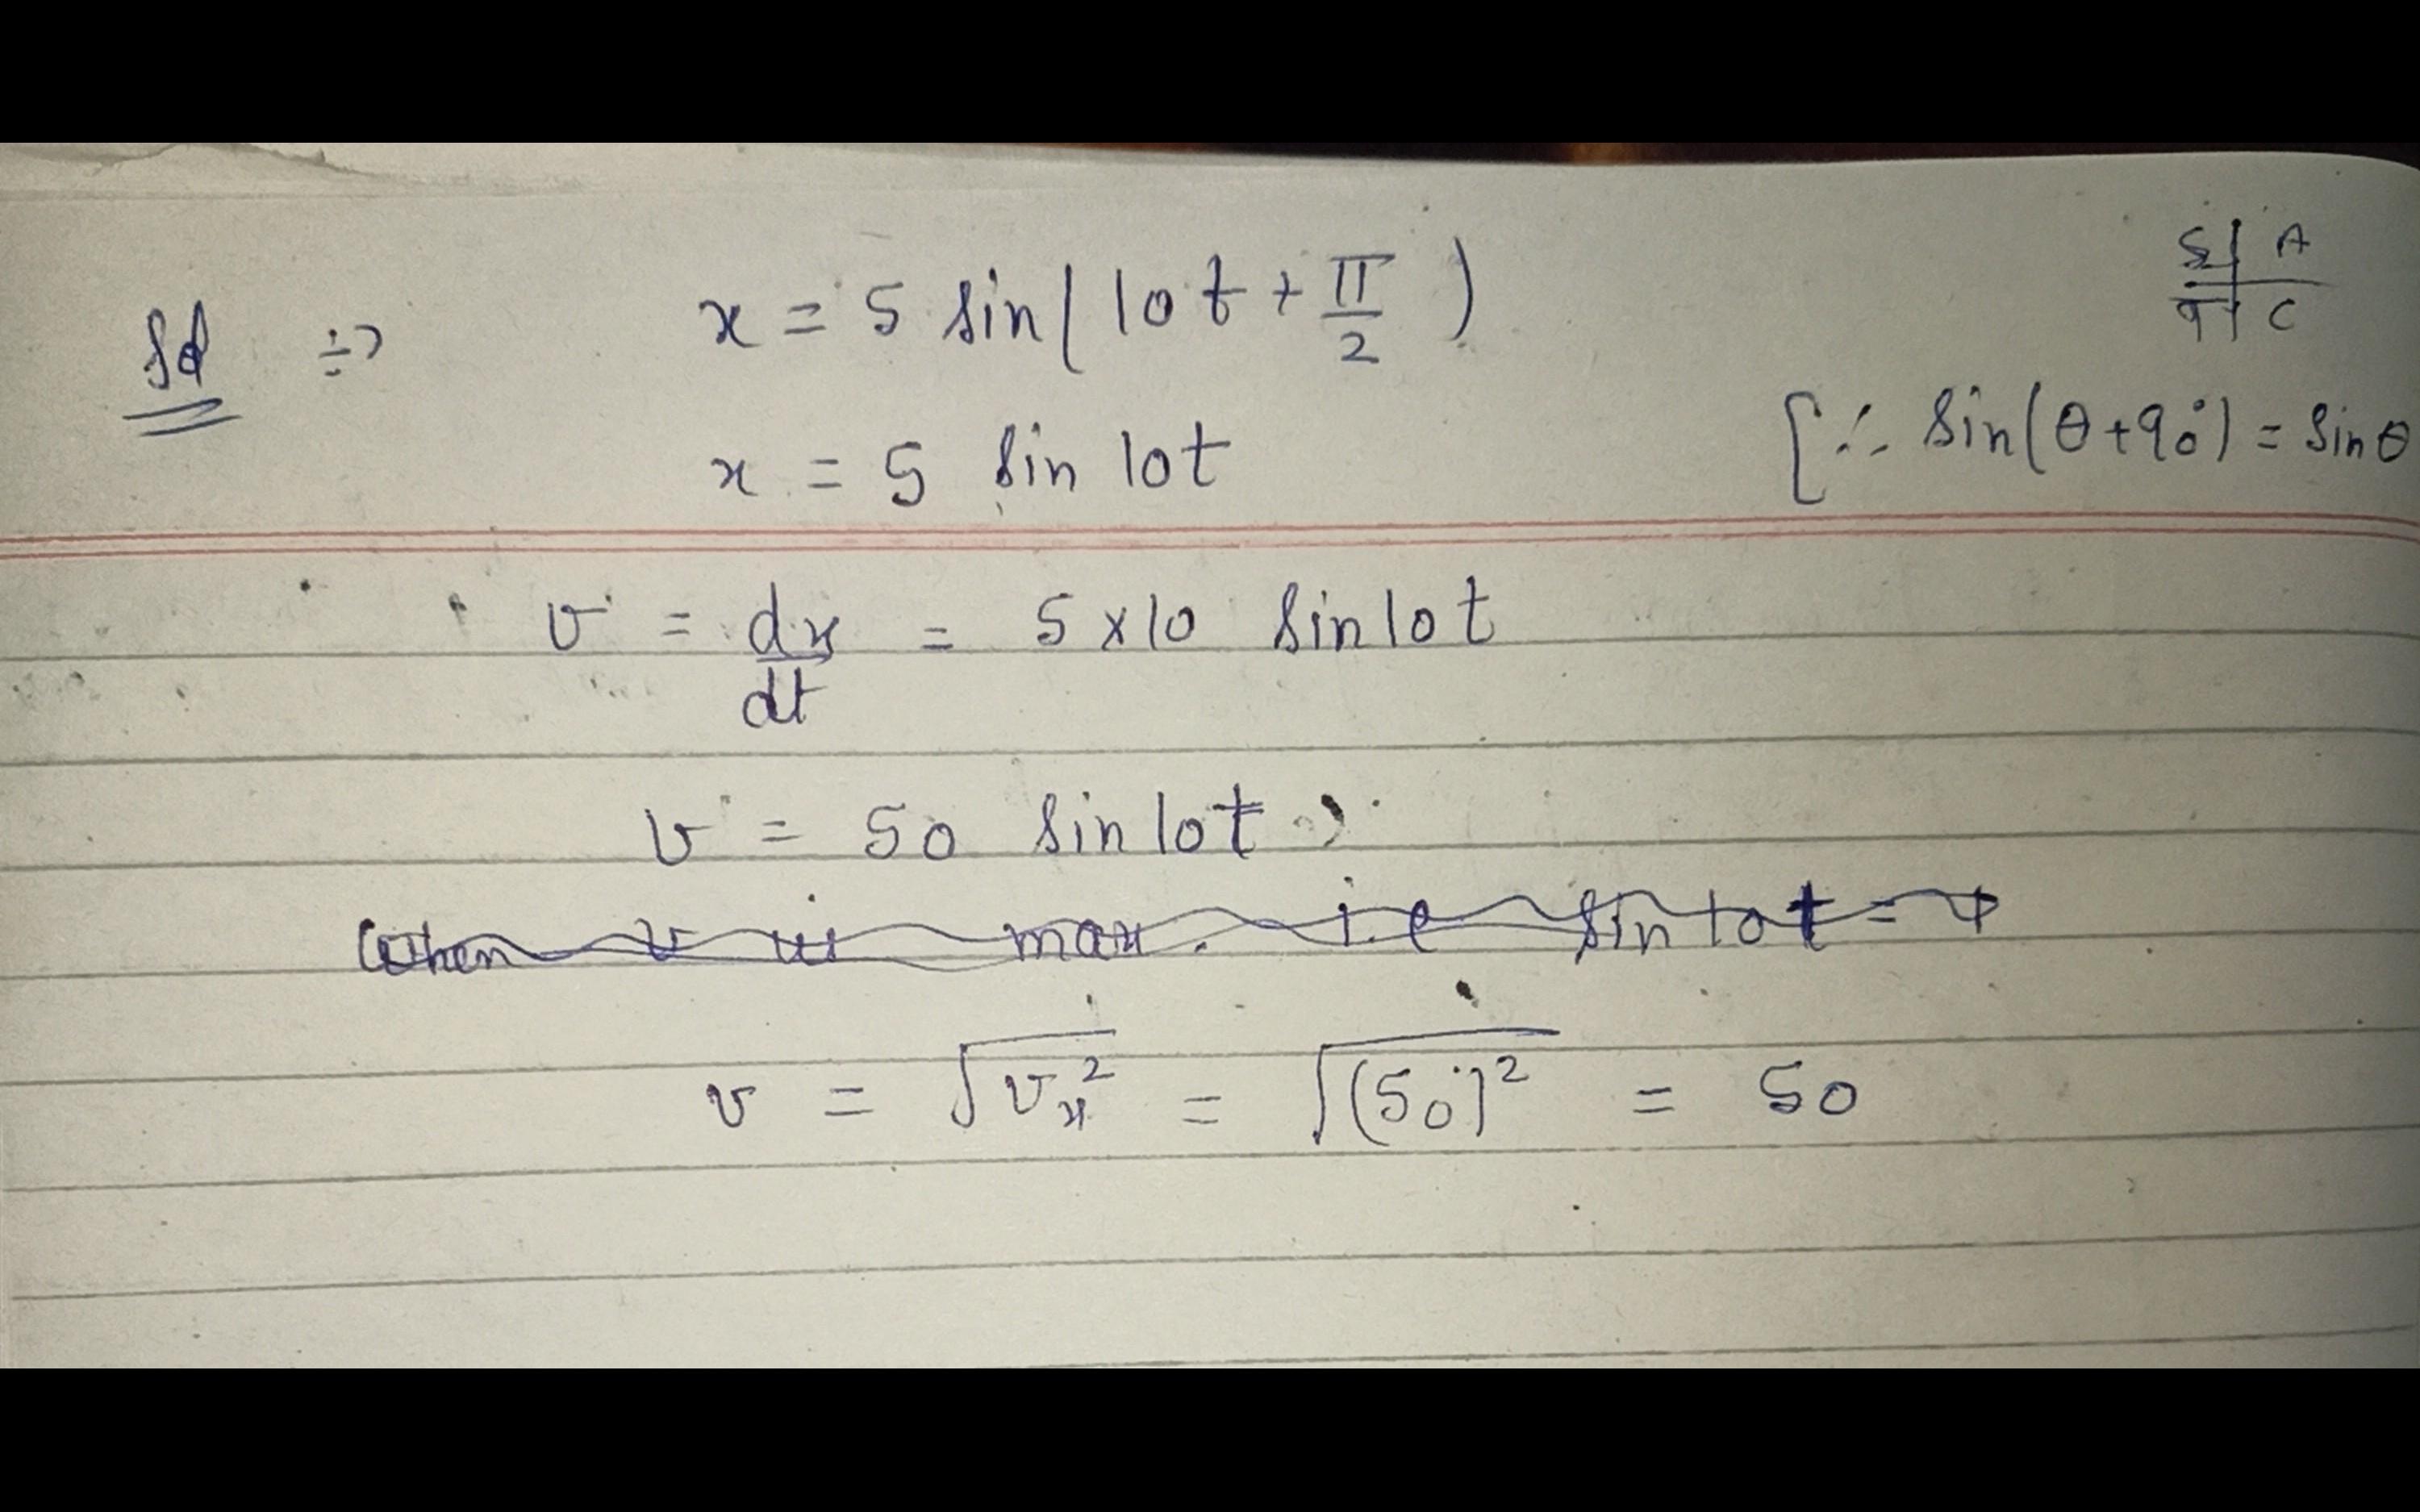 S | A
T | C
Sol ⇒ x = 5 sin(10t + π/2)
x = 5 sin 10t [∴ sin(θ+90°) = sinθ
v = dx/dt = 5×10 sin10t
v = 50 sin10t
When v is max. i.e sin 10t = 1
v = √v_x² = √(50)² = 50